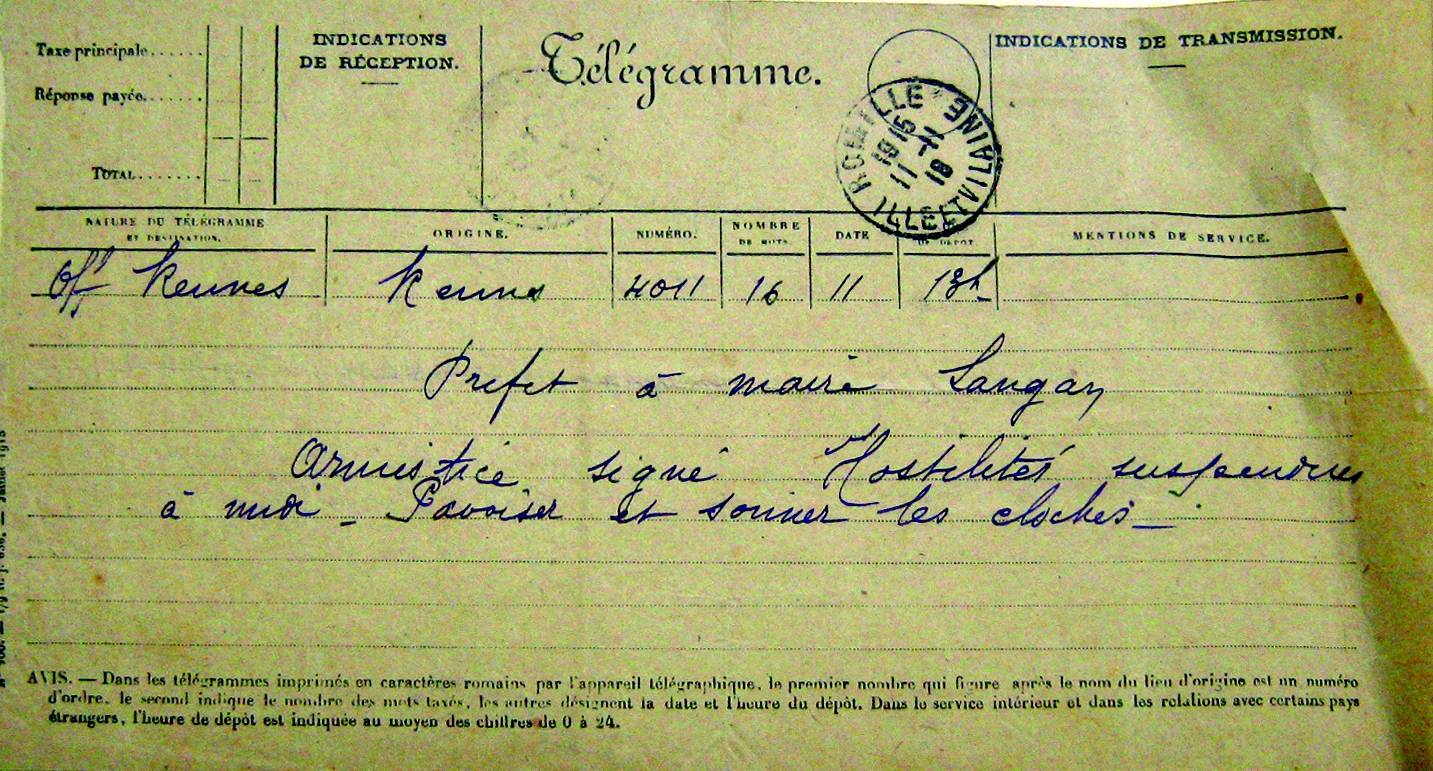 Taxe principale......
Réponse payée.......
TOTAL.......
INDICATIONS
DE RÉCEPTION.
Télégramme.
INDICATIONS DE TRANSMISSION.
ROMILLE * ILLE ET VILAINE
1915
11 - 11
18
NATURE DU TÉLÉGRAMME
ET DESTINATION.
ORIGINE.
NUMÉRO.
NOMBRE
DE MOTS.
DATE
DE DÉPOT.
MENTIONS DE SERVICE.
Off Rennes Rennes 4011 16 11 13h
Prefet à maire Langan
Armistice signé Hostilités suspendues
à midi - Pavoiser et sonner les cloches -
AVIS. — Dans les télégrammes imprimés en caractères romains par l'appareil télégraphique, le premier nombre qui figure après le nom du lieu d'origine est un numéro
d'ordre, le second indique le nombre des mots taxés, les autres désignent la date et l'heure du dépôt. Dans le service intérieur et dans les relations avec certains pays
étrangers, l'heure de dépôt est indiquée au moyen des chiffres de 0 à 24.